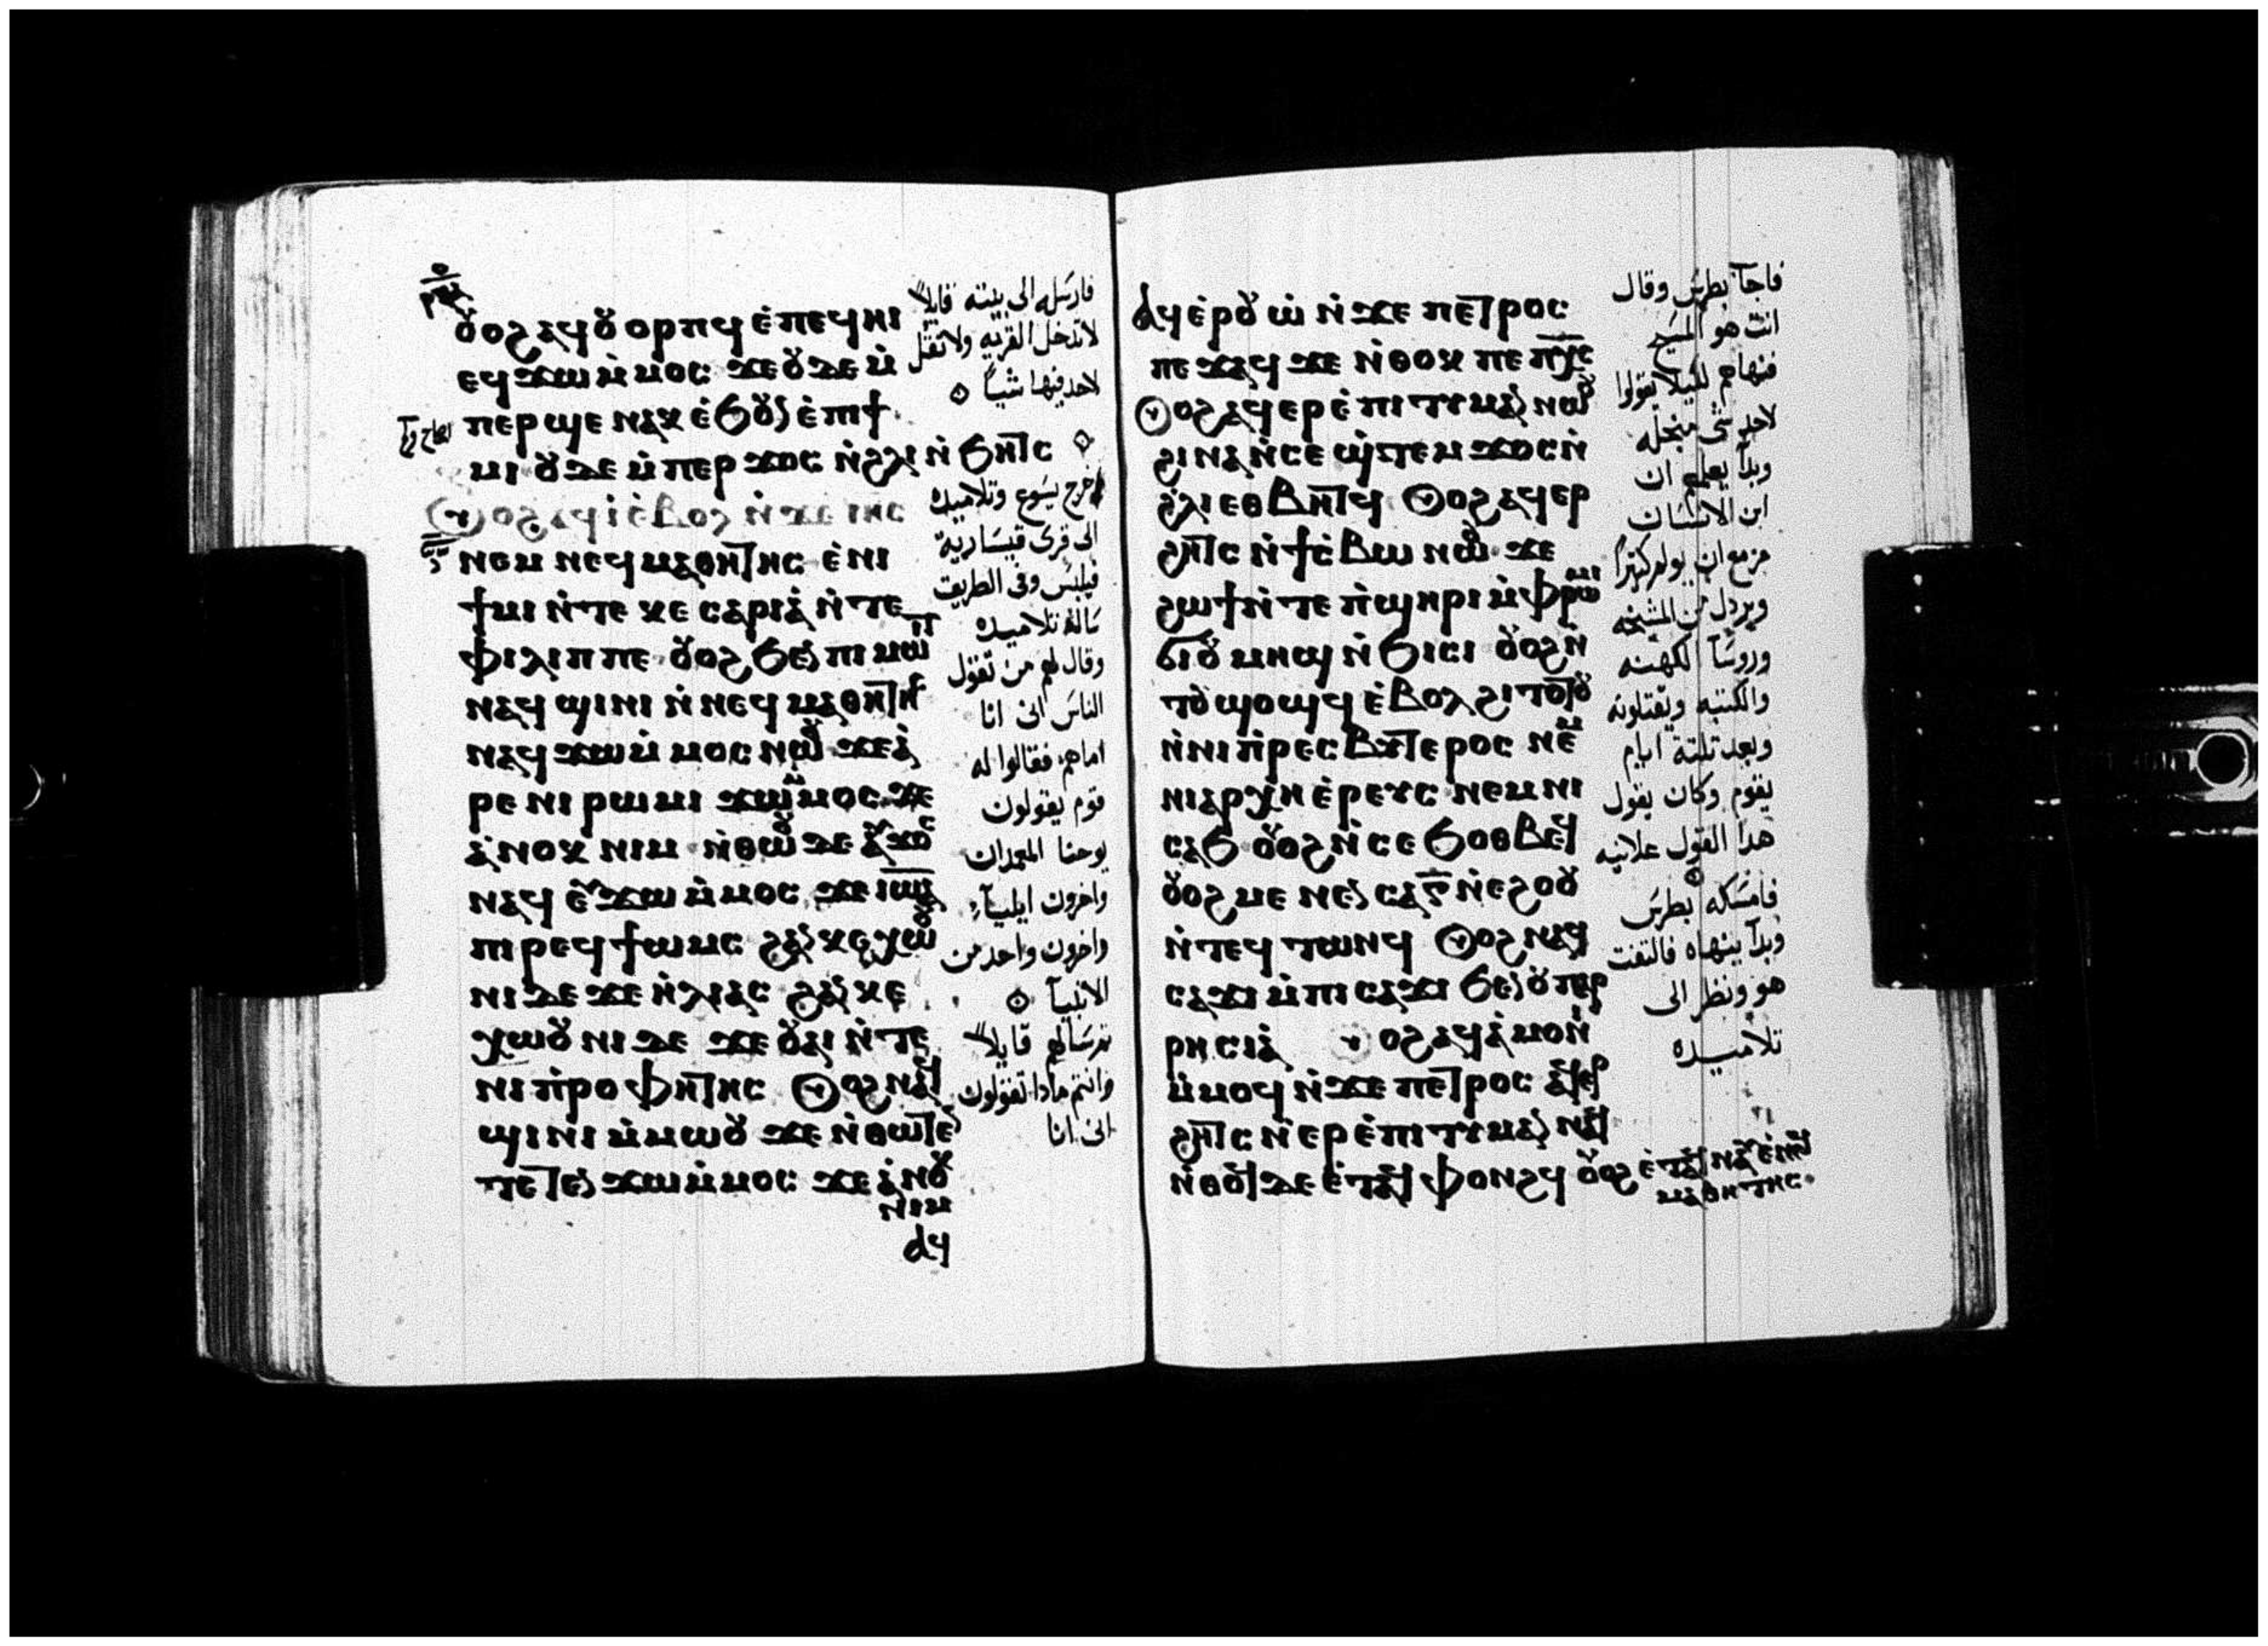 ⲟⲩⲟϩ ⲁϥⲟⲩⲟⲣⲡϥ ⲉ̀ⲡⲉϥⲏⲓ
ⲉϥϫⲱ ⲙ̀ⲙⲟⲥ ϫⲉ ⲟⲩⲇⲉ ⲙ̀
ⲡⲉⲣϣⲉ ⲛⲁⲕ ⲉ̀ϧⲟⲩⲛ ⲉ̀ⲡⲓϯ
ⲙⲓ ⲟⲩⲇⲉ ⲙ̀ⲡⲉⲣϫⲟⲥ ⲛ̀ϩⲗⲓ ⲛ̀ϧⲏⲧⲥ
ⲟⲩⲟϩ ⲁϥⲓ̀ ⲉ̀ⲃⲟⲗ ⲛ̀ϫⲉ ⲓⲏⲥ
ⲛⲉⲙ ⲛⲉϥⲙⲁⲑⲏⲧⲏⲥ ⲉ̀ⲛⲓ
ϯⲙⲓ ⲛ̀ⲧⲉ ⲕⲉⲥⲁⲣⲓⲁ̀ ⲛ̀ⲧⲉ
ⲫⲓⲗⲓⲡⲡⲉ ⲟⲩⲟϩ ϧⲉⲛ ⲡⲓⲙⲱⲓⲧ
ⲛⲁϥϣⲓⲛⲓ ⲛ̀ⲛⲉϥⲙⲁⲑⲏⲧⲏⲥ
ⲛⲁϥϫⲱ ⲙ̀ⲙⲟⲥ ⲛⲱⲟⲩ ϫⲉ ⲁ̀
ⲣⲉ ⲛⲓⲣⲱⲙⲓ ϫⲱ ⲙ̀ⲙⲟⲥ ϫⲉ
ⲁ̀ⲛⲟⲕ ⲛⲓⲙ ⲛ̀ⲑⲱⲟⲩ ⲇⲉ ⲁⲩϫⲟⲥ
ⲛⲁϥ ⲉⲩϫⲱ ⲙ̀ⲙⲟⲥ ϫⲉ ⲓⲱⲁ
ⲡⲓⲣⲉϥϯⲱⲙⲥ ϩⲁⲛⲕⲉⲭⲱⲟⲩ
ⲛⲓ ⲇⲉ ϫⲉ ⲏ̀ⲗⲓⲁⲥ ϩⲁⲛⲕⲉ
ⲭⲱⲟⲩⲛⲓ ⲇⲉ ϫⲉ ⲟⲩⲁⲓ ⲛ̀ⲧⲉ
ⲛⲓⲡ̀ⲣⲟⲫⲏⲧⲏⲥ ⲟⲩⲟϩ ⲛⲁϥ
ϣⲓⲛⲓ ⲙ̀ⲙⲱⲟⲩ ϫⲉ ⲛ̀ⲑⲱⲧⲉⲛ
ⲧⲉⲧⲉⲛϫⲱ ⲙ̀ⲙⲟⲥ ϫⲉ ⲁ̀ⲛⲟⲕ
ⲛⲓⲙ
ⲁϥ
فارسله الى بيته قايلاً
لا تدخل القريه ولا تقل
لاحد فيها شياً
خرج يسوع وتلاميده
الى قرى قيسارية
فيلبس وفى الطريق
سال تلاميده
وقال لهم من تقول
الناس انى انا
اماهم فقالوا له
قوم يقولون
يوحنا المعمدان
واخرون ايلياء
واخرون واحد من
الانبيآ
تم سالهم قايلاً
وانتم مادا تقولون
انى انا
ⲁϥⲉ̀ⲣⲟⲩⲱ̀ ⲛ̀ϫⲉ ⲡⲉⲧⲣⲟⲥ
ⲡⲉϫⲁϥ ϫⲉ ⲛ̀ⲑⲟⲕ ⲡⲉ ⲡⲭ̅ⲥ
ⲟⲩⲟϩ ⲁϥⲉⲣⲉ̀ⲡⲓⲧⲓⲙⲁⲛ ⲛⲱⲟⲩ
ϩⲓⲛⲁ ⲛ̀ⲥⲉϣ̀ⲧⲉⲙϫⲟⲥ ⲛ̀
ϩⲗⲓ ⲉⲑⲃⲏⲧϥ ⲟⲩⲟϩ ⲁϥⲉⲣ
ϩⲏⲧⲥ ⲛ̀ϯⲥ̀ⲃⲱ ⲛⲱⲟⲩ ϫⲉ
ϩⲱϯ ⲛ̀ⲧⲉ ⲡ̀ϣⲏⲣⲓ ⲙ̀ⲫⲣⲱⲙⲓ
ϭⲓ ⲟⲩⲙⲏϣ ⲛ̀ϧⲓⲥⲓ ⲟⲩⲟϩ ⲛ̀
ⲧⲟⲩϣⲟϣϥ ⲉ̀ⲃⲟⲗ ϩⲓⲧⲟⲧⲟⲩ
ⲛ̀ⲛⲓⲡ̀ⲣⲉⲥⲃⲩⲧⲉⲣⲟⲥ ⲛⲉⲙ
ⲛⲓⲁⲣⲭⲏⲉ̀ⲣⲉⲩⲥ ⲛⲉⲙ ⲛⲓ
ⲥⲁϧ ⲟⲩⲟϩ ⲛ̀ⲥⲉϧⲟⲑⲃⲉϥ
ⲟⲩⲟϩ ⲙⲉⲛⲉⲛⲥⲁ ⲅ̅ ⲛ̀ⲉϩⲟⲟⲩ
ⲛ̀ⲧⲉϥⲧⲱⲛϥ ⲟⲩⲟϩ ⲛⲁϥ
ⲥⲁϫⲓ ⲙ̀ⲡⲓⲥⲁϫⲓ ϧⲉⲛ ⲟⲩⲡⲁⲣ
ⲣⲏⲥⲓⲁ̀ ⲟⲩⲟϩ ⲁϥⲁ̀ⲙⲟⲛⲓ
ⲙ̀ⲙⲟϥ ⲛ̀ϫⲉ ⲡⲉⲧⲣⲟⲥ ⲁϥⲉⲣ
ϩⲏⲧⲥ ⲛ̀ⲉⲣⲉ̀ⲡⲓⲧⲓⲙⲁⲛ ⲛⲁϥ
ⲛ̀ⲑⲟϥ ⲇⲉ ⲉ̀ⲧⲁϥⲫⲟⲛϩϥ ⲟⲩⲟϩ ⲉ̀ⲧⲁϥⲛⲁⲩ ⲉ̀ⲛⲉϥ
ⲙⲁⲑⲏⲧⲏⲥ
فاجآب بطرس وقال
انت هو المسيح
فنهاهم لكيلا يقولوا
لاحد شى من اجله
وبدآ يعلم ان
ابن الانسان
مزمع ان يولم كثيراً
ويردل من المشيخه
وروسآ الكهنه
والكتبه ويقتلونه
وبعد تلتة ايام
يقوم وكان يقول
هدا القول علانيه
فامسكه بطرس
وبدآ ينهاه فالتفت
هو ونظر الى
تلاميده